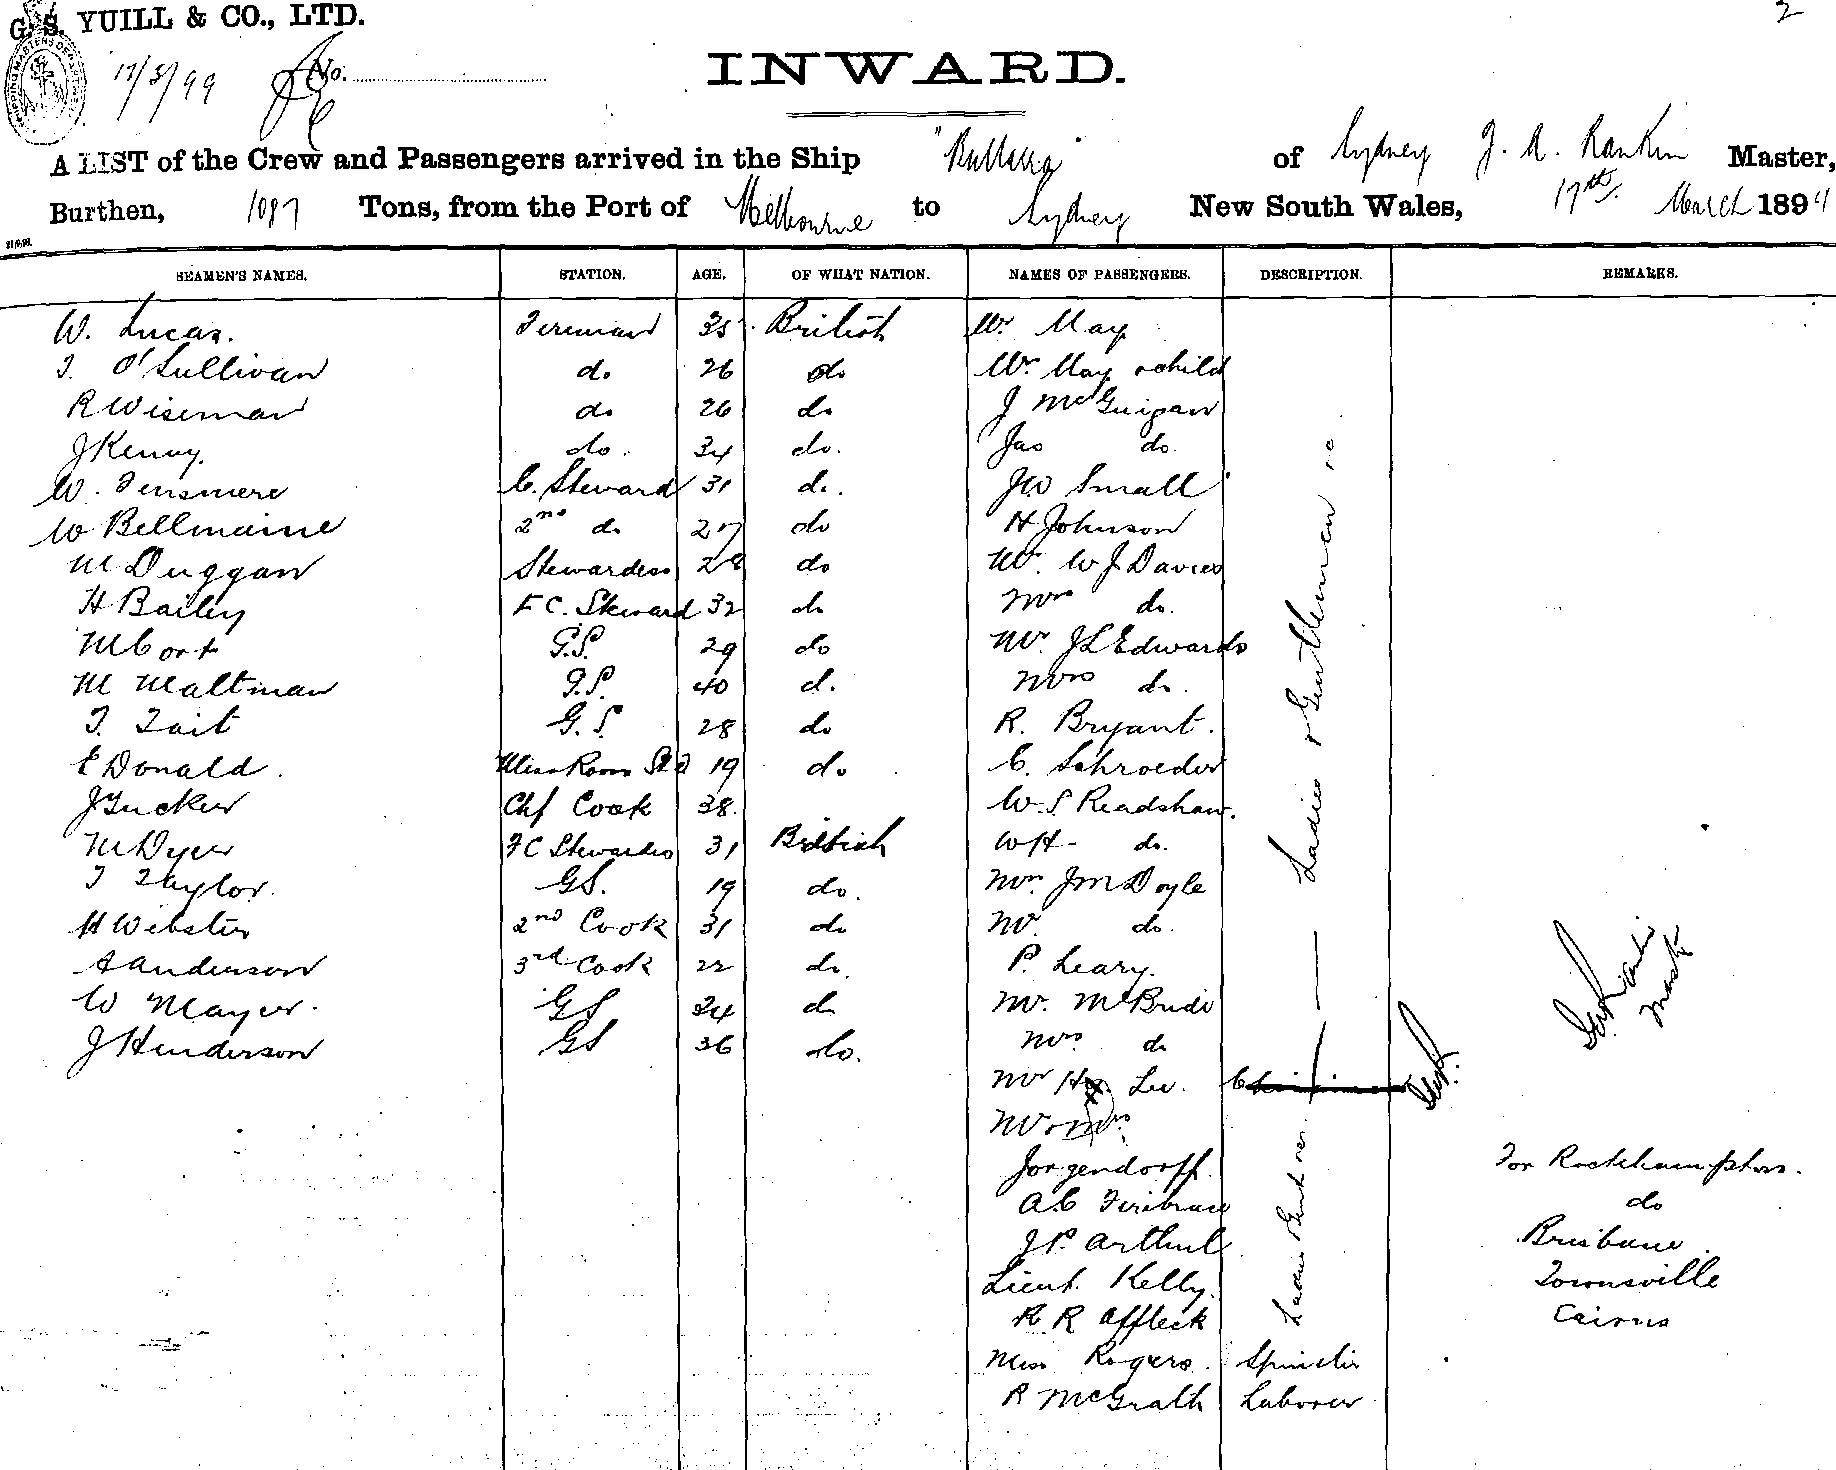 G. S. YUILL & CO., LTD.
2
17/3/99 No.
INWARD.
A LIST of the Crew and Passengers arrived in the Ship "Bulimba" of Sydney J. A. Rankin Master,
Burthen, 1087 Tons, from the Port of Melbourne to Sydney New South Wales, 17th March 1899
SEAMEN'S NAMES. STATION. AGE. OF WHAT NATION. NAMES OF PASSENGERS. DESCRIPTION. REMARKS.
W. Lucas. Fireman 35 British Mr May
T. O'Sullivan do 26 do Mrs May & child
R Wiseman do 26 do J McGuigan
J Kenny. do. 34 do. Jas do.
W. Finsmere C. Steward 31 do. JW Small
W Bellmaine 2nd do 27 do H Johnson
M Duggan Stewardess 28 do Mr. W J Davies
H Bailey F C. Steward 32 do Mrs do.
M Cort G.S. 29 do Mr. J L Edwards
M Maltman G.S. 40 d. Mrs do.
T. Tait G.S. 28 do R. Bryant.
E Donald. Mess Room Std 19 do C. Schroeder
J Tucker Chf Cook 38 W. S Readshaw.
M Dyer FC Stewardess 31 British WH do.
T Taylor. GS. 19 do. Mrs J M Doyle
H Webster 2nd Cook 31 do Mr. do.
A Anderson 3rd Cook 22 do. P. Leary.
W Mayer. GS 24 do Mr. McBride
J Henderson GS 36 do. Mrs do
Ladies & Gentlemen
Mr Lee.
Mr & Mrs
Jorgendorff. For Rockhampton.
A.C. Firebrace do
J P. Arthur Brisbane
Lieut. Kelly. Townsville
R R Affleck Cairns
Miss Rogers. Spinster
R McGrath Laborer